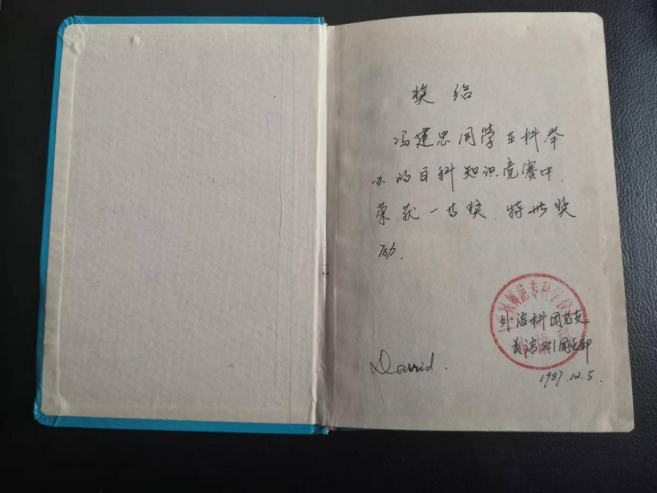 奖给
冯建忠同学在科举
办的百科知识竞赛中
荣获一等奖.特此奖
励.
师范专科学校
外语科团总支
团支部
David.
1987.12.5.